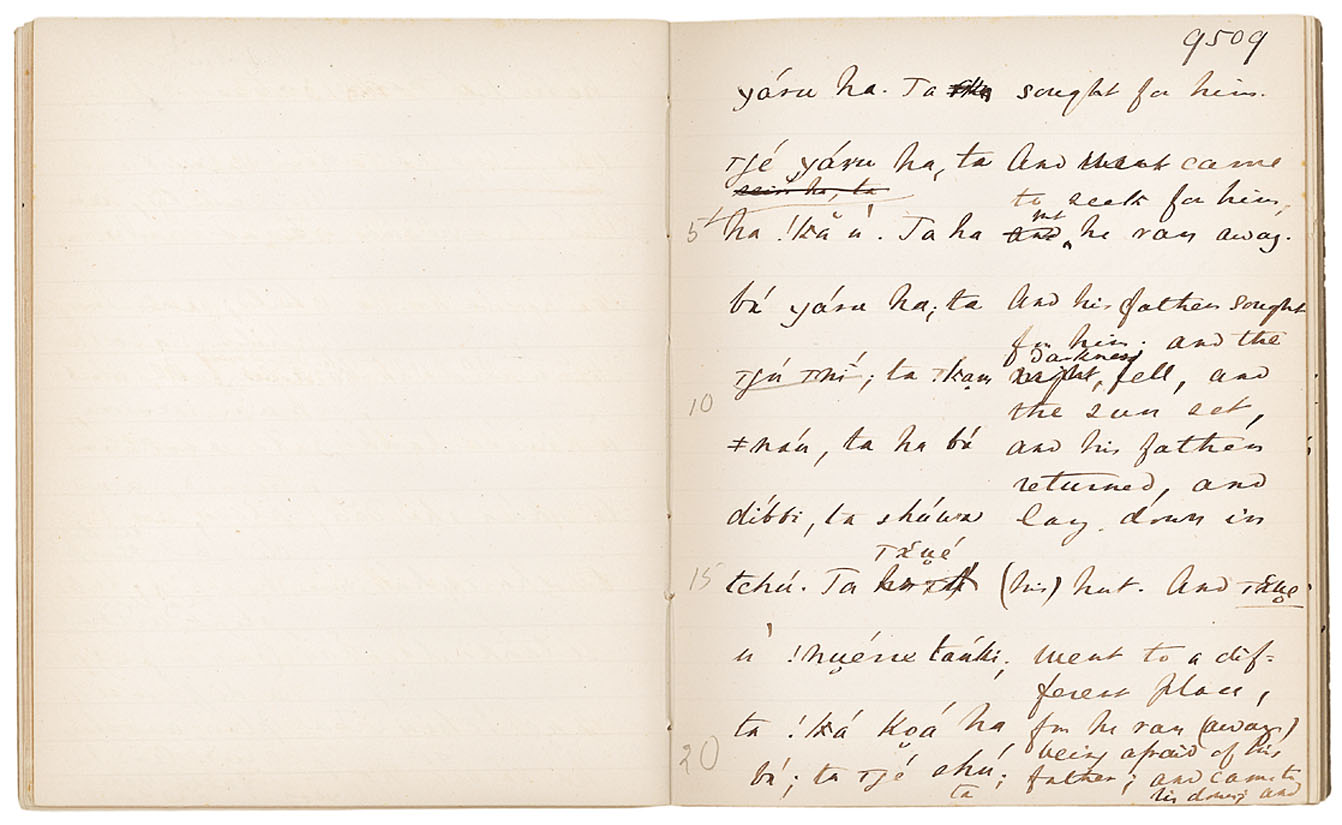 9509
yáru ha. Ta sought for him.
Tjé yáru ha, ta And went came
to seek for him,
5 ha !kă ú. Ta ha and but he ran away.
bá yáru ha; ta And his father sought
for him; and the
darkness
Tjú Tní; ta !kạm night, fell, and
10 the sun set,
ǂnáu, ta ha bá and his father
returned, and
díbbi, ta sháwa lay down in
Tắụé
15 tchú. Ta (his) hut. And Tắụé
ú !nụérre taúki; went to a dif-
ferent place,
ta !ká koá ha for he ran (away)
20 being afraid of his
bá; ta Tjé chú; father; and came to
ta his dower; and